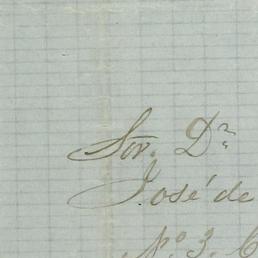 Sor. Dn
José de
No. 3. C